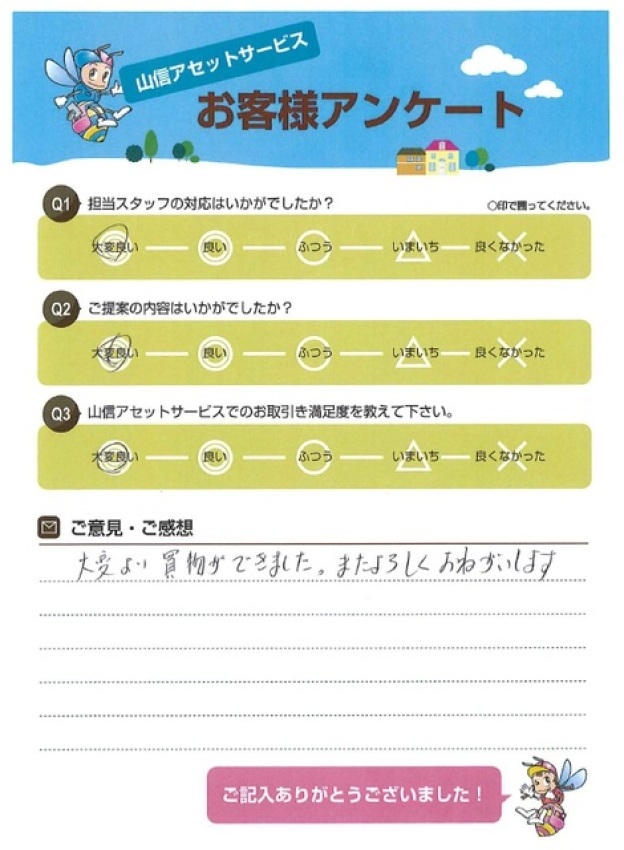 山信アセットサービス
お客様アンケート
Q1 担当スタッフの対応はいかがでしたか？ ○印で囲ってください。
大変良い 良い ふつう いまいち 良くなかった
Q2 ご提案の内容はいかがでしたか？
大変良い 良い ふつう いまいち 良くなかった
Q3 山信アセットサービスでのお取引き満足度を教えて下さい。
大変良い 良い ふつう いまいち 良くなかった
ご意見・ご感想
大変よい買物ができました。またよろしくおねがいします
ご記入ありがとうございました！